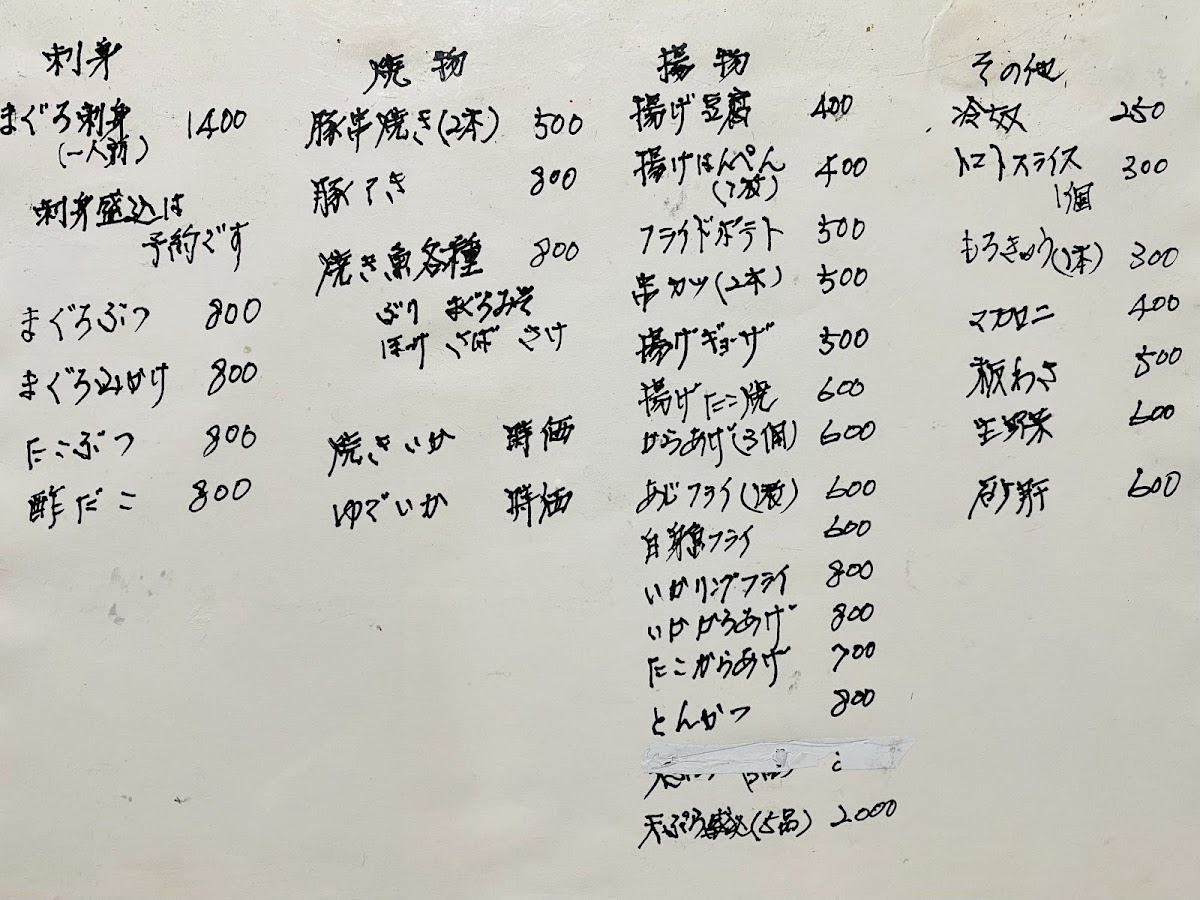 刺身
まぐろ刺身 1400
(一人前)
刺身盛込は
予約です
まぐろぶつ 800
まぐろ山かけ 800
たこぶつ 800
酢だこ 800
焼物
豚串焼き(2本) 500
豚てき 800
焼き魚各種 800
ぶり まぐろみそ
ほっけ さば さけ
焼きいか 時価
ゆでいか 時価
揚物
揚げ豆腐 400
揚げはんぺん 400
(1枚)
フライドポテト 500
串カツ(2本) 500
揚げギョーザ 500
揚げたこ焼 600
からあげ(3個) 600
あじフライ(1枚) 600
白身魚フライ 600
いかリングフライ 800
いかからあげ 800
たこからあげ 700
とんかつ 800
天ぷら盛込(5品) 2000
その他
冷奴 250
トマトスライス 300
1個
もろきゅう(1本) 300
マカロニ 400
板わさ 500
生野菜 600
砂肝 600